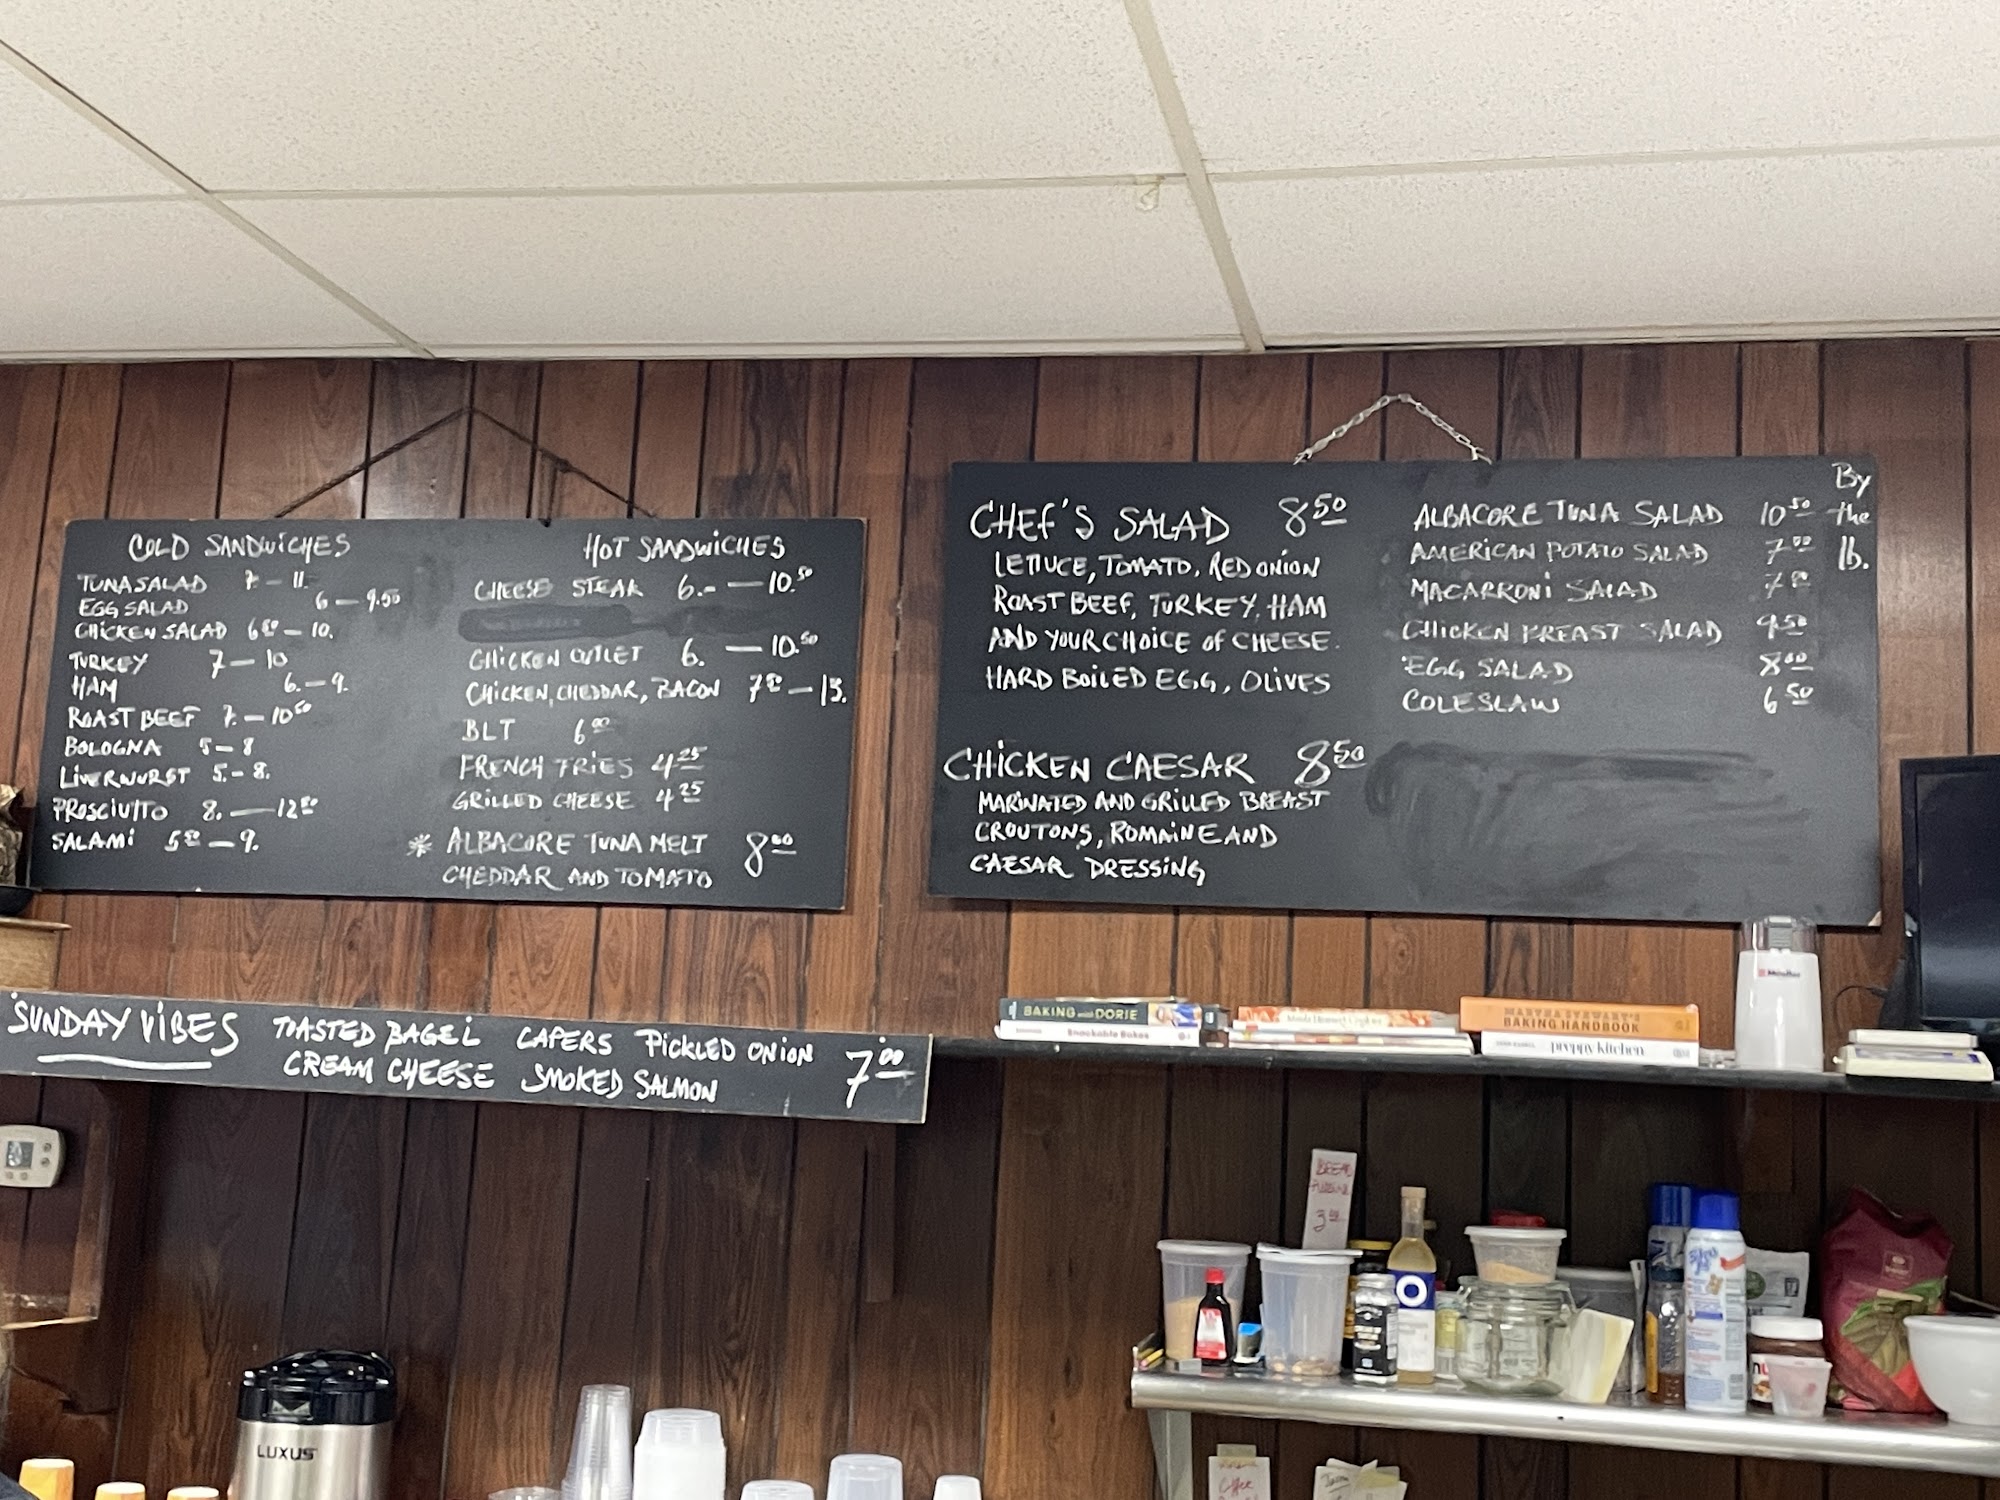 COLD SANDWICHES
TUNA SALAD 7. - 11.
EGG SALAD 6 - 9.50
CHICKEN SALAD 6 50 - 10.
TURKEY 7 - 10
HAM 6. - 9.
ROAST BEEF 7. - 10 50
BOLOGNA 5 - 8
LIVERWURST 5. - 8.
PROSCIUTTO 8. - 12 50
SALAMI 5 50 - 9.
HOT SANDWICHES
CHEESE STEAK 6.- - 10.50
CHICKEN CUTLET 6. - 10.50
CHICKEN, CHEDDAR, BACON 7 50 - 13.
BLT 6 00
FRENCH FRIES 4 25
GRILLED CHEESE 4 25
* ALBACORE TUNA MELT 8 00
CHEDDAR AND TOMATO
CHEF'S SALAD 8 50
LETTUCE, TOMATO, RED ONION
ROAST BEEF, TURKEY, HAM
AND YOUR CHOICE OF CHEESE.
HARD BOILED EGG, OLIVES
CHICKEN CAESAR 8 50
MARINATED AND GRILLED BREAST
CROUTONS, ROMAINE AND
CAESAR DRESSING
By
the
lb.
ALBACORE TUNA SALAD 10 50
AMERICAN POTATO SALAD 7 00
MACARRONI SALAD 7 50
CHICKEN BREAST SALAD 9 50
EGG SALAD 8 00
COLESLAW 6 50
SUNDAY VIBES
TOASTED BAGEL CAPERS PICKLED ONION
CREAM CHEESE SMOKED SALMON
7.00
BAKING with DORIE
Snackable Bakes
MARTHA STEWART'S
BAKING HANDBOOK
preppy kitchen
LUXUS